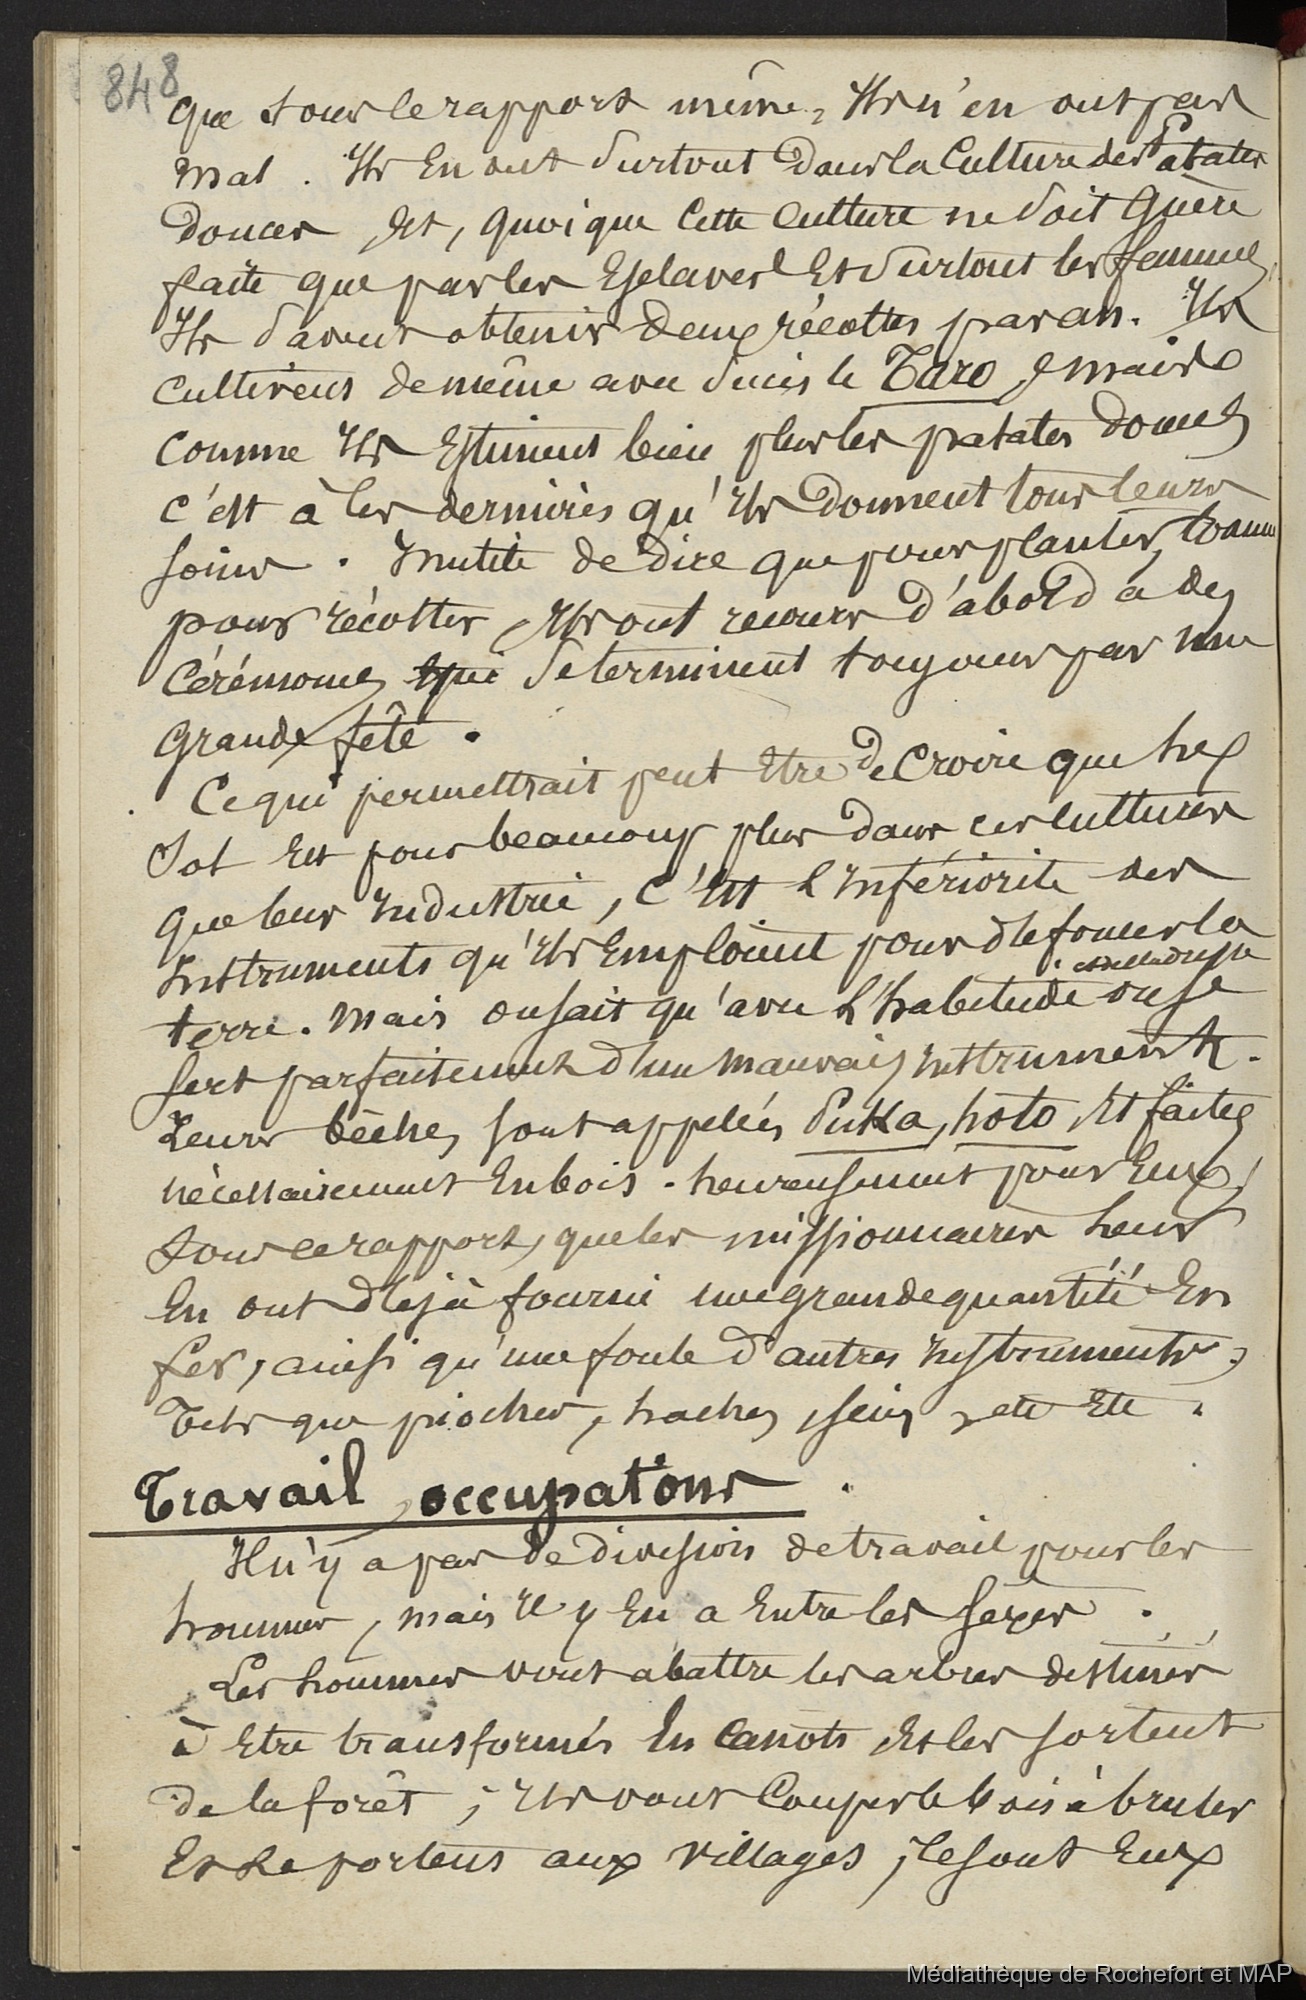 848
que sous le rapport même, Ils n'en ont pas
mal. Ils En ont surtout dans la Culture des Patates
douces Et, quoique Cette Culture ne soit Guère
faite que par les Esclaves Et surtout les femmes,
Ils savent obtenir deux récoltes par an. Ils
cultivent de même avec succès le Taro, & mais
comme Ils Estiment bien plus les patates douces
c'est à les dernières qu'Ils donnent tous leurs
soins. Inutile de dire que pour planter, comme
pour récolter, Ils ont recours d'abord à des
Cérémonies qui se terminent toujours par une
grande fête.
Ce qui permettrait peut Etre de Croire que le
sol Est pour beaucoup plus dans ces cultures
que leur Industrie, c'Est l'Infériorité des
Instruments qu'Ils Emploient pour défoncer la
terre. Mais on sait qu'avec l'habitude on se
sert parfaitement d'un mauvais Instrument.
Leurs bêches sont appelées Puka, hoto, Et faites
nécessairement En bois. heureusement pour Eux,
sous ce rapport, que les missionnaires leur
En ont déjà fourni une grande quantité En
fer, ainsi qu'une foule d'autres Instruments,
Tels que pioches, haches, scies, etc Etc.
Travail, occupations.
Il n'y a pas de division de travail pour les
hommes, mais Il y En a Entre les sexes.
Les hommes vont abattre les arbres destinés
à Etre transformés En Canots, Et les sortent
de la forêt; Ils vont Couper le bois à bruler
Et le portent aux villages; ce sont Eux
Médiathèque de Rochefort et MAP